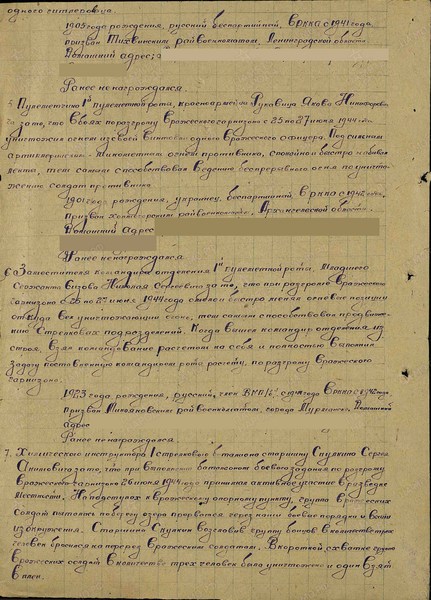 одного гитлеровца.
1905 года рождения, русский, беспартийный, в РККА с 1941 года
призван Тихвинским райвоенкоматом, Ленинградской области.
Домашний адрес:
Ранее не награждался.
5 Пулеметчика 1й пулеметной роты, красноармейца Якова
за то, что в боях по разгрому вражеского гарнизона с 25 по 27 июня 1944 г.
уничтожил огнем из своей винтовки одного вражеского офицера. Под сильным
артиллерийско-минометным огнем противника, спокойно и быстро набивал
ленты, тем самым способствовал ведению беспрерывного огня по уничто-
жению солдат противника.
1901 года рождения, украинец, беспартийный, в РККА с
призван райвоенкоматом, Архангельской области.
Домашний адрес
Ранее не награждался
6. Заместителя командира отделения 1й пулеметной роты, младшего
сержанта за то, что при разгроме вражеского
гарнизона 25 по 27 июня 1944 года быстро менял огневые позиции
откуда вел уничтожающий огонь, тем самым способствовал продвиже-
нию стрелковых подразделений. Когда вышел командир отделения из
строя, взял командование расчетом на себя и полностью выполнил
задачу поставленную командиром роты расчету, по разгрому вражеского
гарнизона.
1923 года рождения, русский, член ВКП/б/ с года в РККА с
призван райвоенкоматом, города Мурманск, Домашний
адрес
Ранее не награждался.
7. Химического инструктора 1 стрелкового батальона старшину Сергея
за то, что при выполнении батальоном боевого задания по разгрому
вражеского гарнизона 26 июня 1944 года принимал активное участие в разведке
местности. На подступах к вражескому опорному пункту, группа вражеских
солдат пыталась по берегу озера прорваться через наши боевые порядки и выйти
из окружения. Старшина возглавив группу бойцов в количестве трех
человек бросился на перерез вражеским солдатам. В короткой схватке группа
вражеских солдат в количестве трех человек была уничтожена и один взят
в плен.